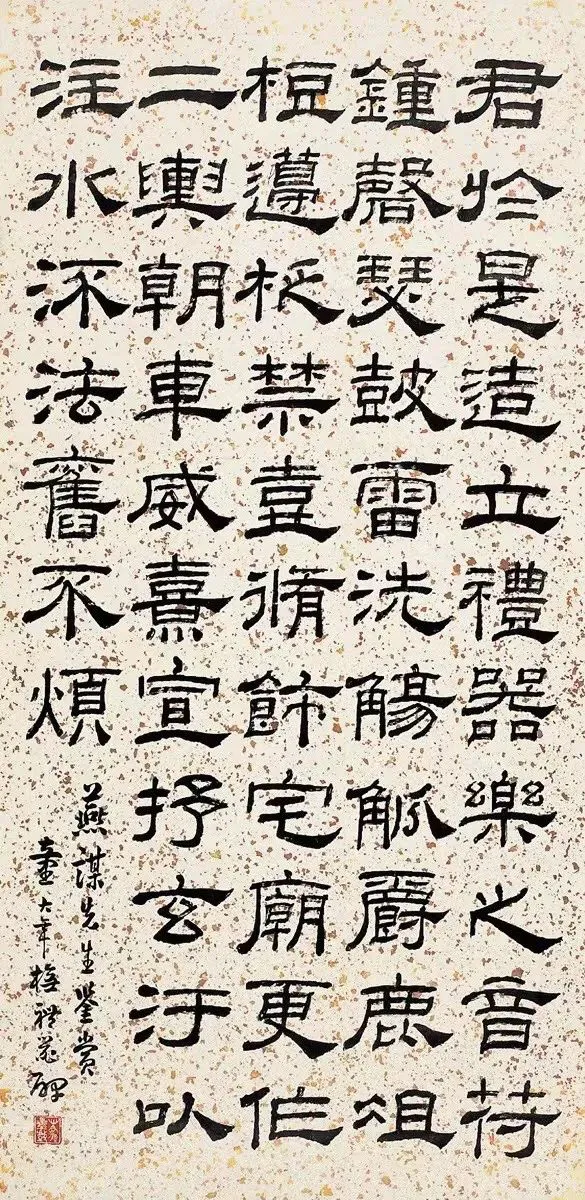 君於是造立禮器樂之音苻
鍾磬瑟鼓雷洗觴觚爵鹿俎
梪籩柉禁壺脩飾宅廟更作
二輿朝車威熹宣抒玄汙以
注水流法舊不煩
燕謀先生鑒賞
童大年橅禮器碑